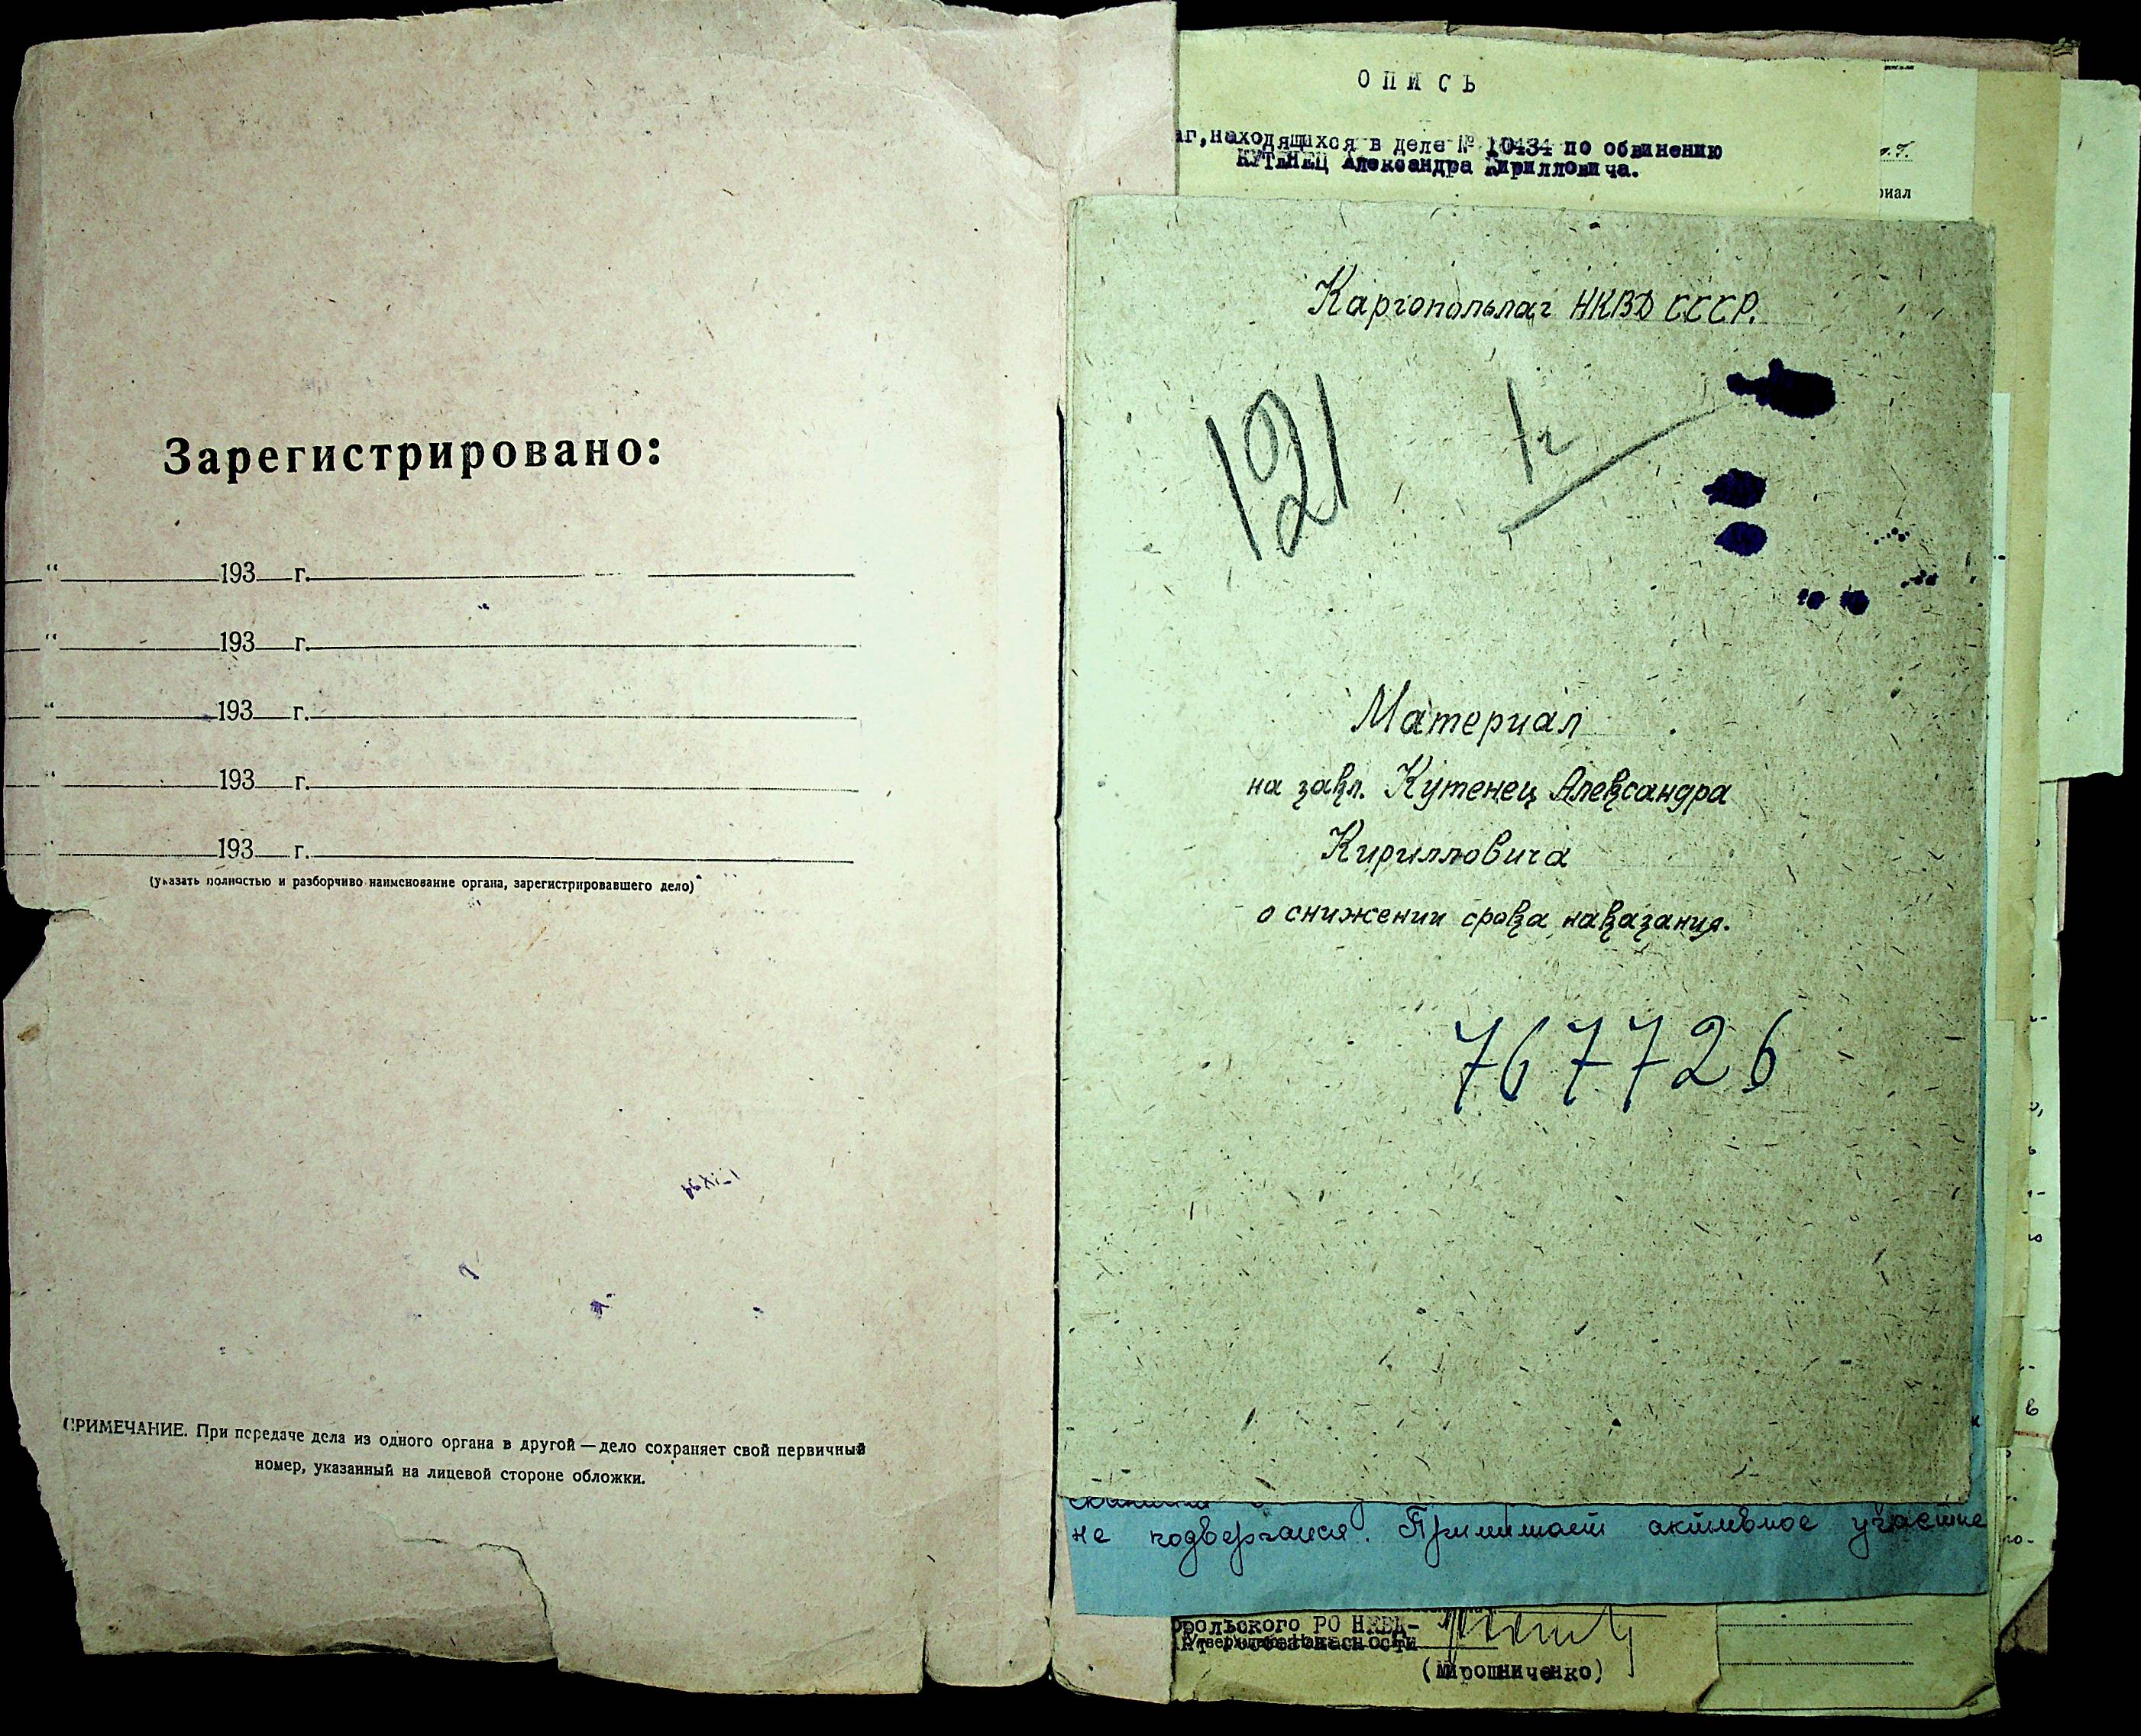 Зарегистрировано:
“ 193 г.
“ 193 г.
“ 193 г.
“ 193 г.
“ 193 г.
(указать полностью и разборчиво наименование органа, зарегистрировавшего дело)
ПРИМЕЧАНИЕ. При передаче дела из одного органа в другой — дело сохраняет свой первичный
номер, указанный на лицевой стороне обложки.
ОПИСЬ
аг, находящихся в деле № 10434 по обвинению
КУТЕНЕЦ Александра Кирилловича.
риал
Каргопольлаг НКВД СССР.
121
Материал
на закл. Кутенец Александра
Кирилловича
о снижении срока наказания.
767726
не подвергался. Принимает активное участие
рольского РО НКВД-
Госбезопасности
(Мирошниченко)